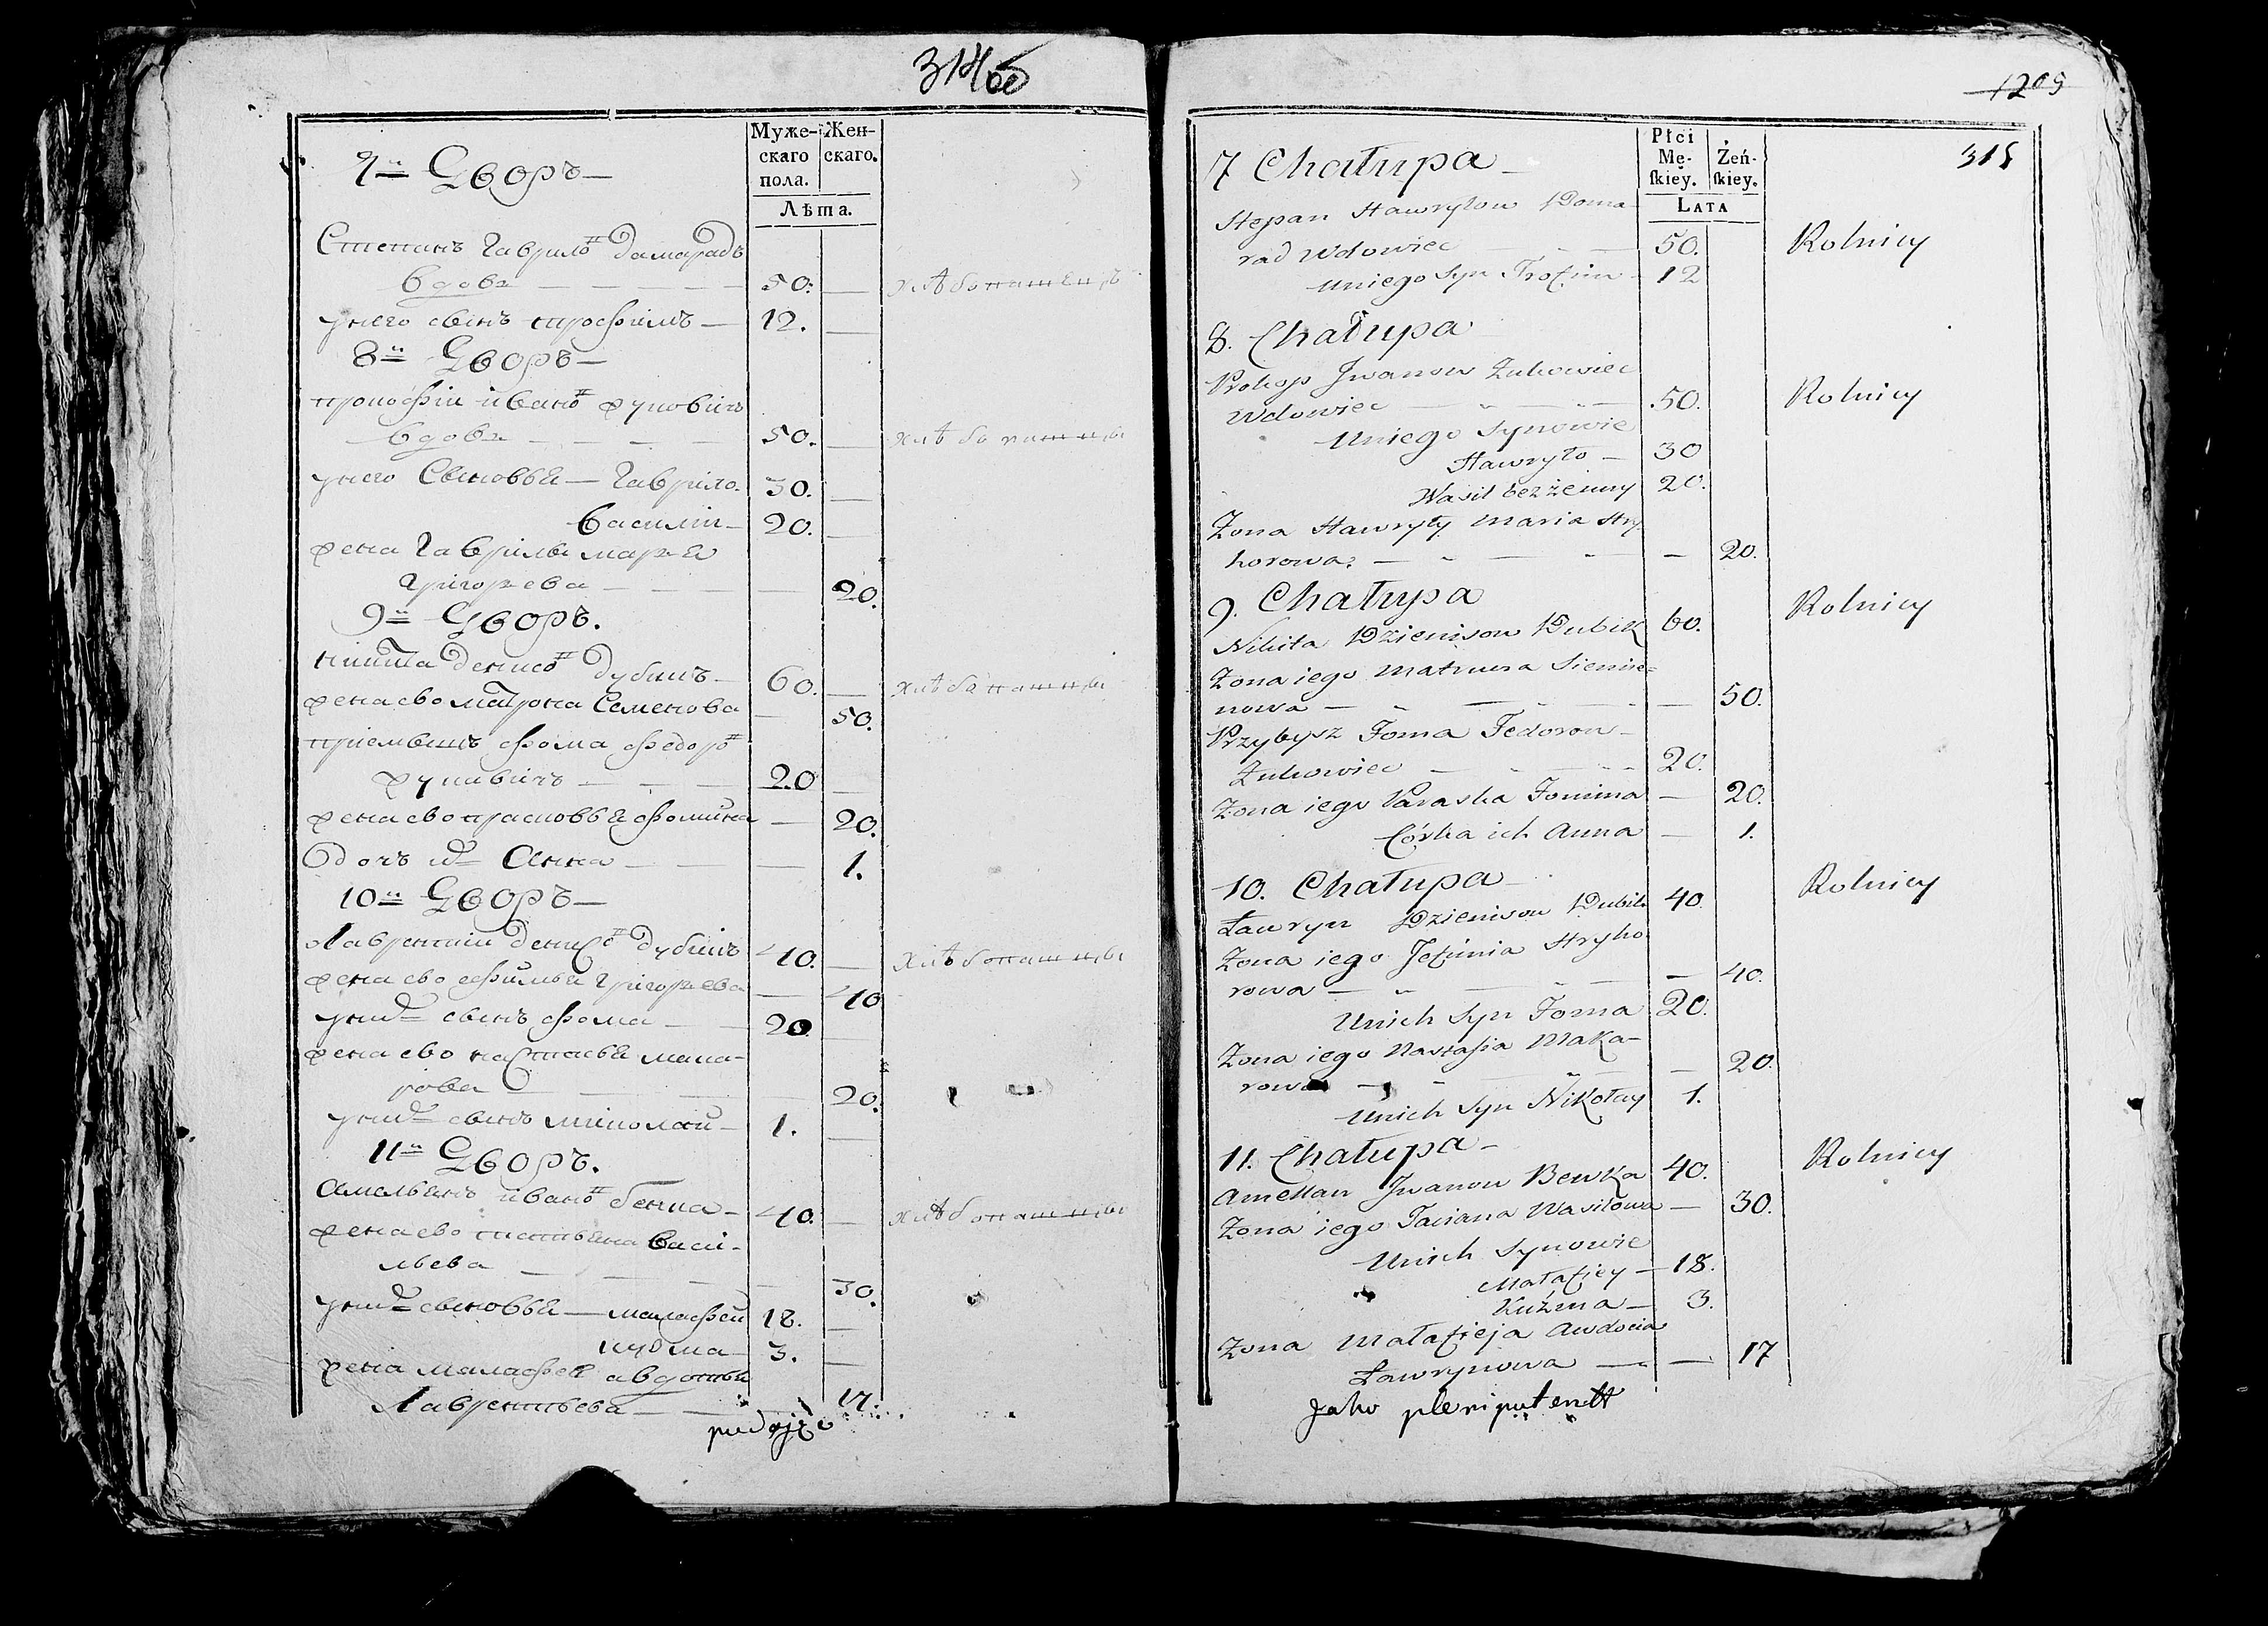 314об
Муже-
скаго
пола.
Жен-
скаго.
Лѣта.
7й Дворъ
Степанъ Гаврилов Дамарадъ
вдовъ 50.
хлѣбопашецъ
у него сынъ трофимъ 12.
8й Дворъ
прокофій иванов жуковичъ
вдовъ 50.
хлѣбопашцы
у него Сыновья Гаврило 30.
василій 20.
жена Гаврилы марья
Григорьева 20.
9й Дворъ.
никита денисов дубикъ 60.
хлѣбопашцы
жена ево матрона Семенова 50.
приемышъ фома федоров
жуковичъ 20
жена ево прасковья фомина 20.
дочь их Анна 1.
10й Дворъ
Лаврентій денисов дубикъ 40.
хлѣбопашцы
жена ево ефимья григорьева 40
у них сынъ фома 20
жена ево настасья мака-
рова 20.
у них сынъ николай 1.
11й Дворъ.
Амельянъ иванов бенка 40.
хлѣбопашцы
жена ево татьяна васи-
льева 30.
у них сыновья малафей 18.
кузма 3.
жена малафея авдотья
Лаврентьева 17.
1205
315
Płci
Mę-
ſkiey.
Żeń-
ſkiey.
LATA
7 Chałupa
Stepan Hawryłow Doma-
rad Wdowiec 50.
Rolnicy
Uniego Syn Trofim 12
8. Chałupa
Prokop Jwanow Żukowiec
Wdowiec 50.
Rolnicy
Uniego Synowie
Hawryło 30
Wasil bezżenny 20.
Żona Hawryły Maria Hry-
horowa. 20.
9. Chałupa
Rolnicy
Nikita Dzienisow Dubik 60.
Żona iego Matruna Siemie=
nowa 50.
Przybysz Foma Fedorow
Żukowiec 20.
Żona iego Paraska Fomina 20.
Córka ich Anna 1.
10. Chałupa
Rolnicy
Ławryn Dzienisow Dubik 40.
Żona iego Jefimia Hryho-
rowa 40.
Unich Syn Foma 20.
Żona iego Nastasia Maka-
rowa 20.
Unich Syn Nikołay 1.
11. Chałupa
Rolnicy
Amellan Jwanow Benka 40.
Żona iego Taciana Wasilowa 30.
Unich Synowie
Małafiey 18.
Kuźma 3.
Żona Małafieja Awdocia
Ławrynowa 17
Jako plenipotentt